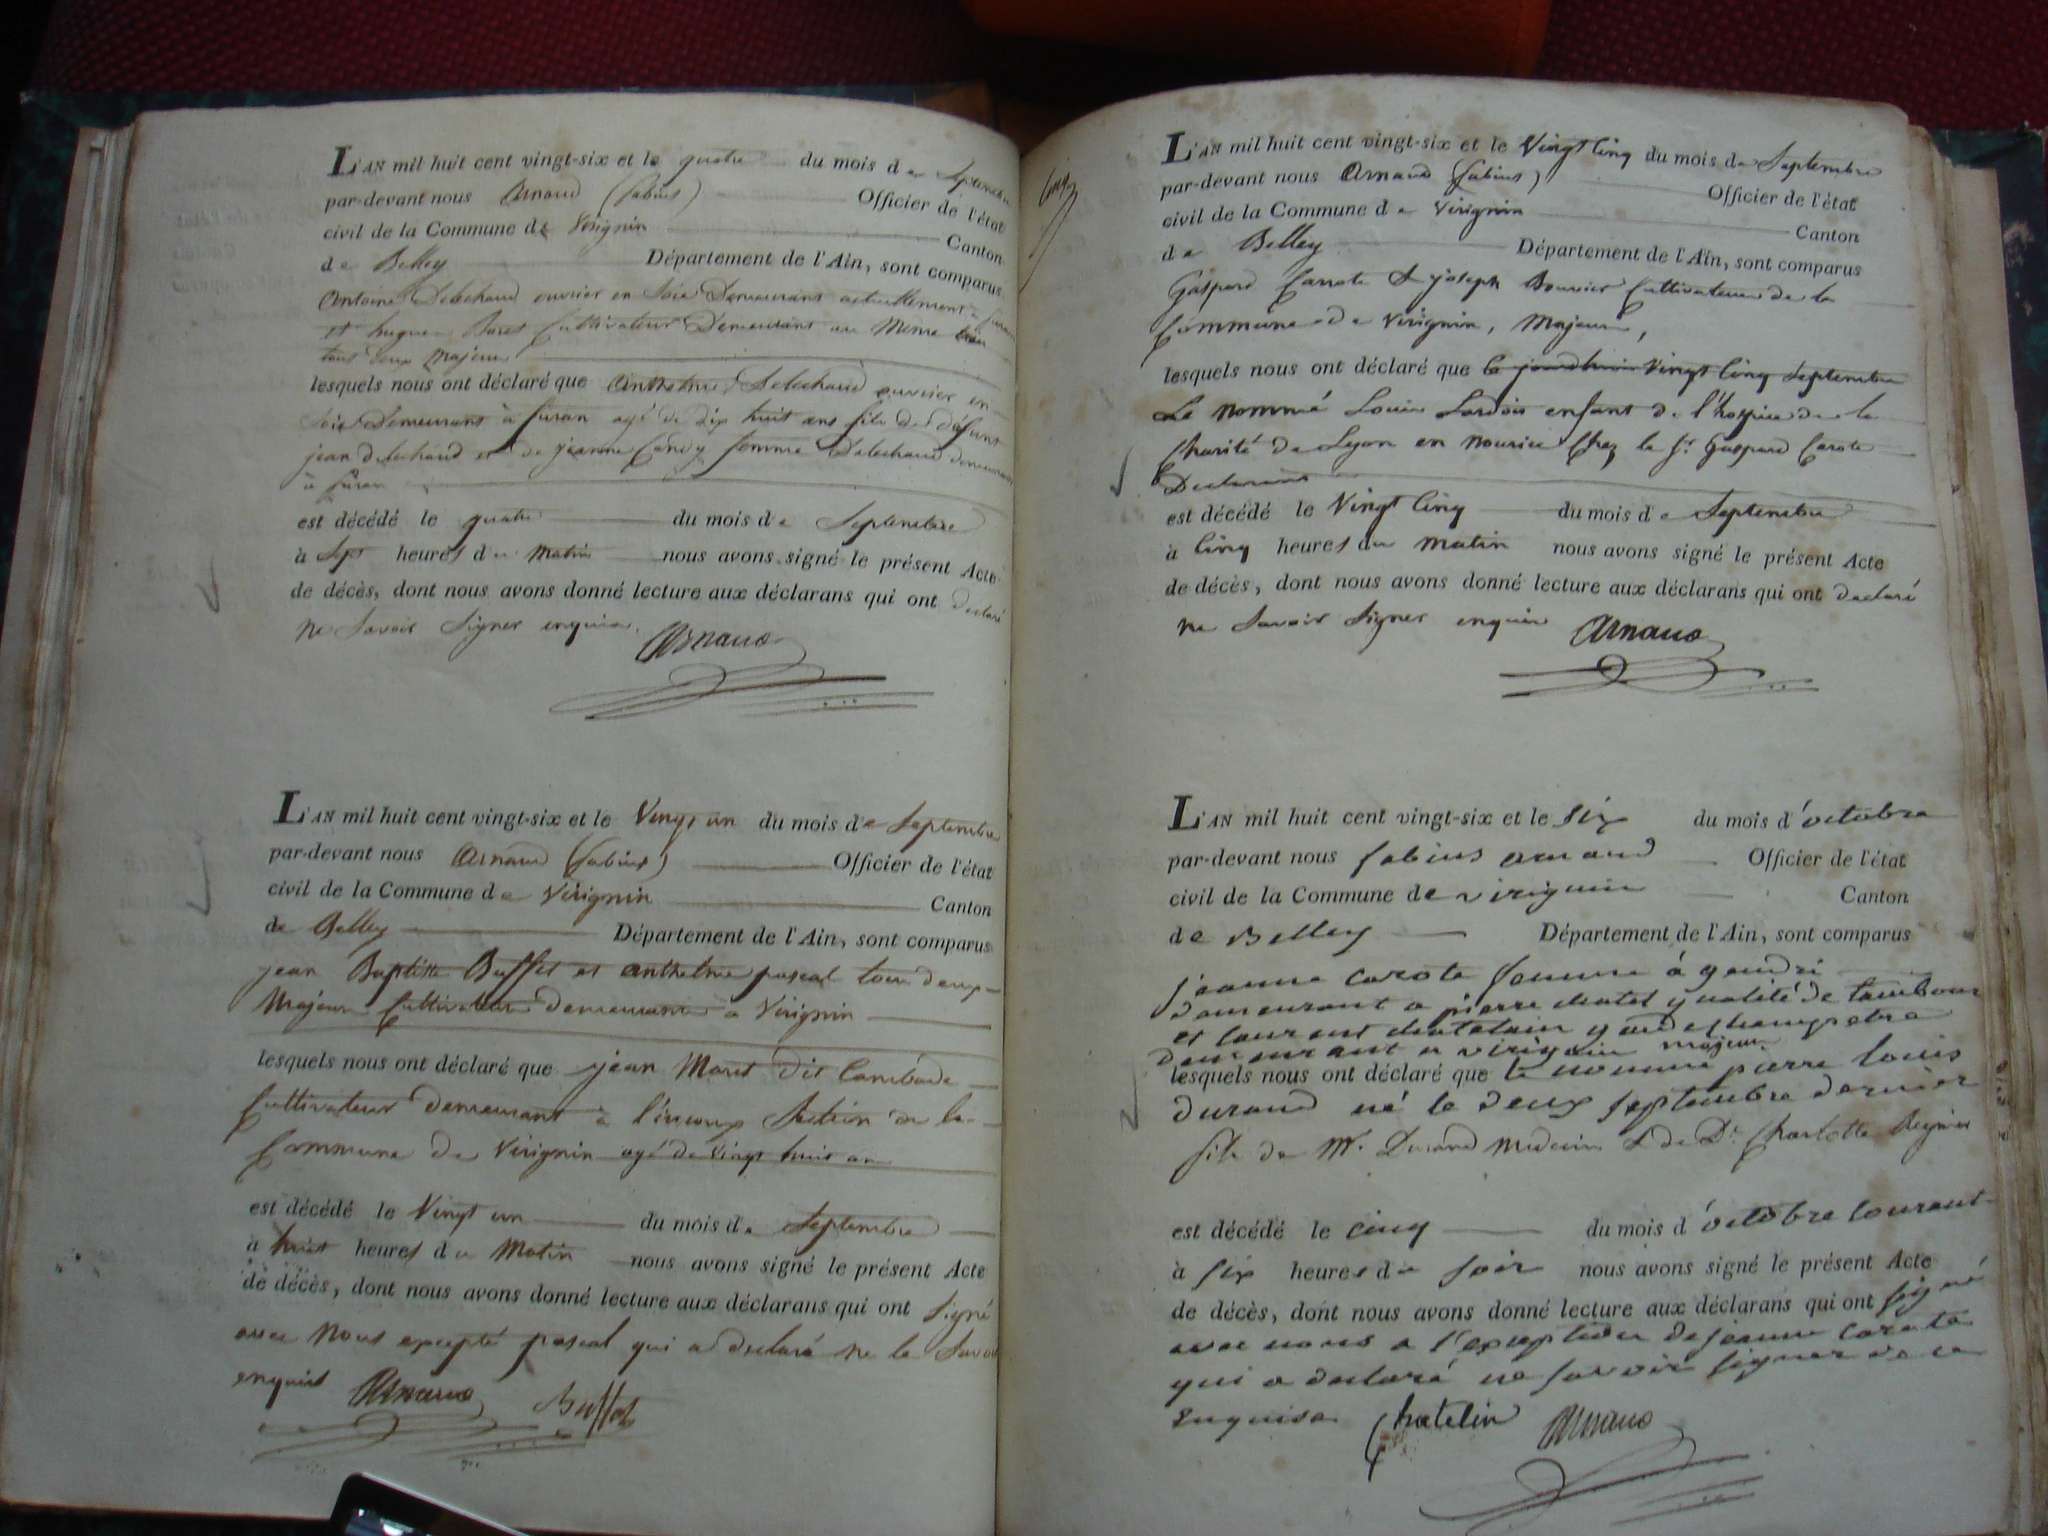 L'AN mil huit cent vingt-six et le quatre du mois de Septembre
par-devant nous Arnaud (fabius) Officier de l'état
civil de la Commune de Virignin Canton
de Belley Département de l'Ain, sont comparus
Antoine Delechaud ouvrier en Soie Demeurant actuellement à furan
et hugues Cultivateur Demeurant au Même lieu
tous deux Majeurs
lesquels nous ont déclaré que Anthelme Delechaud ouvrier en
Soie Demeurant à furan agé de dix huit ans fils de défunt
jean delechaud et de jeanne Candy femme Delechaud demeurant
à furan
est décédé le quatre du mois de Septembre
à Sept heures du Matin nous avons signé le présent Acte
de décès, dont nous avons donné lecture aux déclarans qui ont declaré
ne Savoir Signer enquis.
Arnaud
L'AN mil huit cent vingt-six et le Vingt un du mois de Septembre
par-devant nous Arnaud (fabius) Officier de l'état
civil de la Commune de Virignin Canton
de Belley Département de l'Ain, sont comparus
jean Baptiste Buffet et anthelme pascal tous deux
Majeurs Cultivateur demeurant à Virignin
lesquels nous ont déclaré que jean Moret dit
Cultivateur demeurant à Section de la
Commune de Virignin agé de Vingt huit an
est décédé le Vingt un du mois de Septembre
à huit heures du Matin nous avons signé le présent Acte
de décès, dont nous avons donné lecture aux déclarans qui ont Signé
avec Nous excepté pascal qui a declaré ne le Savoir
enquis Arnaud Buffet
L'AN mil huit cent vingt-six et le Vingt Cinq du mois de Septembre
par-devant nous Arnaud (fabius) Officier de l'état
civil de la Commune de Virignin Canton
de Belley Département de l'Ain, sont comparus
Gaspard Carrote & joseph Bouvier Cultivateurs de la
Commune de Virignin, Majeurs,
lesquels nous ont déclaré que ce jourdhui Vingt Cinq Septembre
Le nommé Louis enfant de l'hospice de la
Charité de Lyon en nourice Chez le Sr. Gaspard Carote
Declarant
est décédé le Vingt Cinq du mois de Septembre
à Cinq heures du Matin nous avons signé le présent Acte
de décès, dont nous avons donné lecture aux déclarans qui ont declaré
ne Savoir Signer enquis Arnaud
L'AN mil huit cent vingt-six et le six du mois d'octobre
par-devant nous fabius arnaud Officier de l'état
civil de la Commune de virignin Canton
de Belley Département de l'Ain, sont comparus
jeanne carote femme à
demeurant a pierre chatel qualité de tambour
et laurent chatelain garde champetre
demeurant a virignin majeurs
lesquels nous ont déclaré que le nommé pierre louis
durand né le deux septembre dernier
fils de Mr. Durand Medecin & de De. Charlotte
est décédé le cinq du mois d'octobre courant
à six heures du soir nous avons signé le présent Acte
de décès, dont nous avons donné lecture aux déclarans qui ont signé
avec nous a l'exception de jeanne carote
qui a declaré ne savoir signer de ce
enquise Chatelin Arnaud